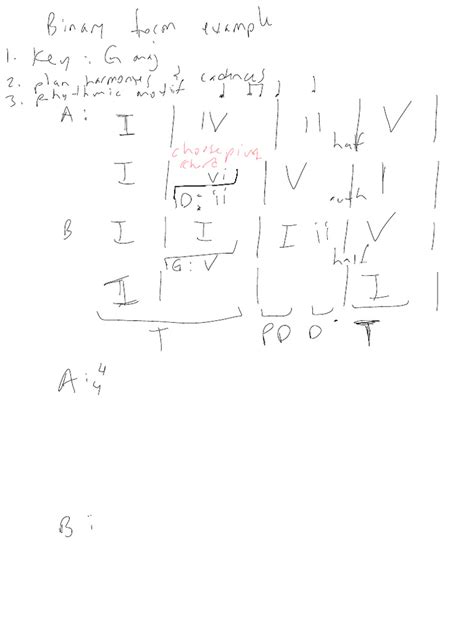 Binary form example
1. Key: G maj
2. plan harmonies & cadences
3. Rhythmic motif ♩ ♫ ♩ ♩
A: I | IV | ii half | V |
choose pivot chord
I | vi | V auth | I |
D: ii
B I | I | I ii half | V |
G: V
I | | | I |
T PD D T
A: 4/4
B: